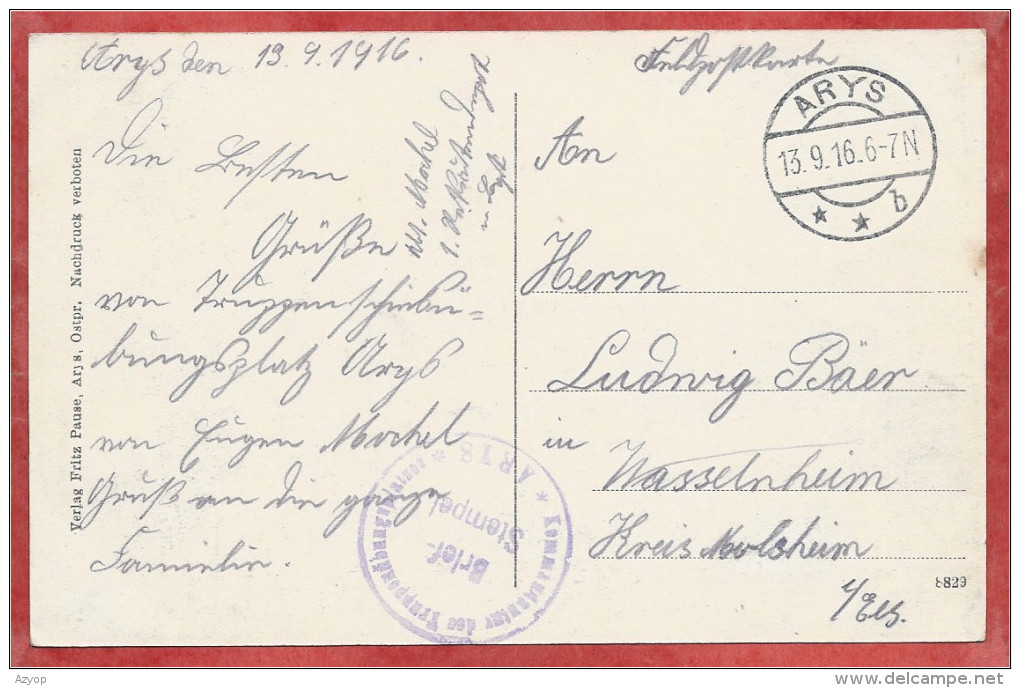 Arys den 13.9.1916.
Die Besten
Grüße
von Truppenschießü=
bungsplatz Arys
von Eugen Mockel
Gruß an die ganze
Familie.
Mockel
in Lyck
Verlag Fritz Pause, Arys, Ostpr. Nachdruck verboten
Feldpostkarte
ARYS
13.9.16.6-7N
* * b
An
Herrn
Ludwig Bäer
in
Wasselnheim
Kreis Molsheim
i/Els.
8829
* ARYS * Kommandantur des Truppenübungsplatzes
Brief-
Stempel
Azyop
delcampe.net